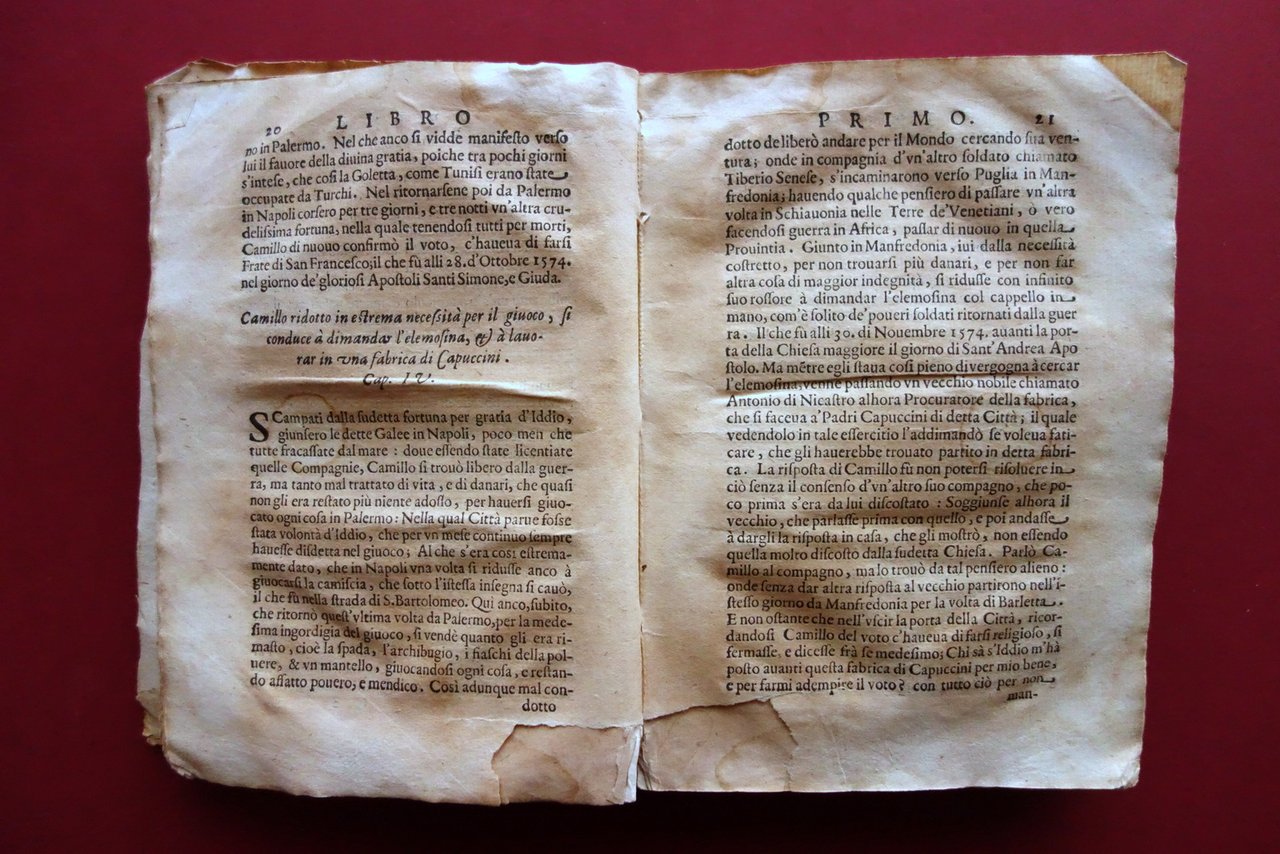 20 LIBRO
no in Palermo. Nel che anco si vidde manifesto verso
lui il fauore della diuina gratia, poiche tra pochi giorni
s'intese, che così la Goletta, come Tunisi erano state
occupate da Turchi. Nel ritornarsene poi da Palermo
in Napoli corsero per tre giorni, e tre notti vn'altra cru-
delissima fortuna, nella quale tenendosi tutti per morti,
Camillo di nuouo confirmò il voto, c'haueua di farsi
Frate di San Francesco; il che fù alli 28. d'Ottobre 1574.
nel giorno de' gloriosi Apostoli Santi Simone, e Giuda.
Camillo ridotto in estrema necessità per il giuoco, si
conduce à dimandar l'elemosina, & à lauo-
rar in vna fabrica di Capuccini.
Cap. IV.
SCampati dalla sudetta fortuna per gratia d'Iddio,
giunsero le dette Galee in Napoli, poco men che
tutte fracassate dal mare: doue essendo state licentiate
quelle Compagnie, Camillo si trouò libero dalla guer-
ra, ma tanto mal trattato di vita, e di danari, che quasi
non gli era restato più niente adosso, per hauersi giuo-
cato ogni cosa in Palermo: Nella qual Città parue fosse
stata volontà d'Iddio, che per vn mese continuo sempre
hauesse disdetta nel giuoco; Al che s'era così estrema-
mente dato, che in Napoli vna volta si ridusse anco à
giuocarsi la camiscia, che sotto l'istessa insegna si cauò,
il che fù nella strada di S. Bartolomeo. Qui anco, subito,
che ritornò quest'vltima volta da Palermo, per la mede-
sima ingordigia del giuoco, si vendè quanto gli era ri-
masto, cioè la spada, l'archibugio, i fiaschi della pol-
uere, & vn mantello, giuocandosi ogni cosa, e restan-
do affatto pouero, e mendico. Così adunque mal con-
dotto
PRIMO. 21
dotto deliberò andare per il Mondo cercando sua ven-
tura; onde in compagnia d'vn'altro soldato chiamato
Tiberio Senese, s'incaminarono verso Puglia in Man-
fredonia; hauendo qualche pensiero di passare vn'altra
volta in Schiauonia nelle Terre de' Venetiani, ò vero
facendosi guerra in Africa, passar di nuouo in quella
Prouintia. Giunto in Manfredonia, iui dalla necessità
costretto, per non trouarsi più danari, e per non far
altra cosa di maggior indegnità, si ridusse con infinito
suo rossore à dimandar l'elemosina col cappello in
mano, com'è solito de' poueri soldati ritornati dalla guer
ra. Il che fù alli 30. di Nouembre 1574. auanti la por-
ta della Chiesa maggiore il giorno di Sant'Andrea Apo
stolo. Ma mẽtre egli staua così pieno di vergogna à cercar
l'elemosina, venne passando vn vecchio nobile chiamato
Antonio di Nicastro alhora Procuratore della fabrica,
che si faceua a' Padri Capuccini di detta Città; il quale
vedendolo in tale essercitio l'addimandò se voleua fati-
care, che gli hauerebbe trouato partito in detta fabri-
ca. La risposta di Camillo fù non potersi risoluere in
ciò senza il consenso d'vn'altro suo compagno, che po-
co prima s'era da lui discostato: Soggiunse alhora il
vecchio, che parlasse prima con quello, e poi andasse
à dargli la risposta in casa, che gli mostrò, non essendo
quella molto discosto dalla sudetta Chiesa. Parlò Ca-
millo al compagno, ma lo trouò da tal pensiero alieno:
onde senza dar altra risposta al vecchio partirono nell'i-
stesso giorno da Manfredonia per la volta di Barletta.
E non ostante che nell'vscir la porta della Città, ricor-
dandosi Camillo del voto c'haueua di farsi religioso, si
fermasse, e dicesse frà se medesimo; Chi sà s'Iddio m'hà
posto auanti questa fabrica di Capuccini per mio bene,
e per farmi adempire il voto? con tutto ciò per non
man-